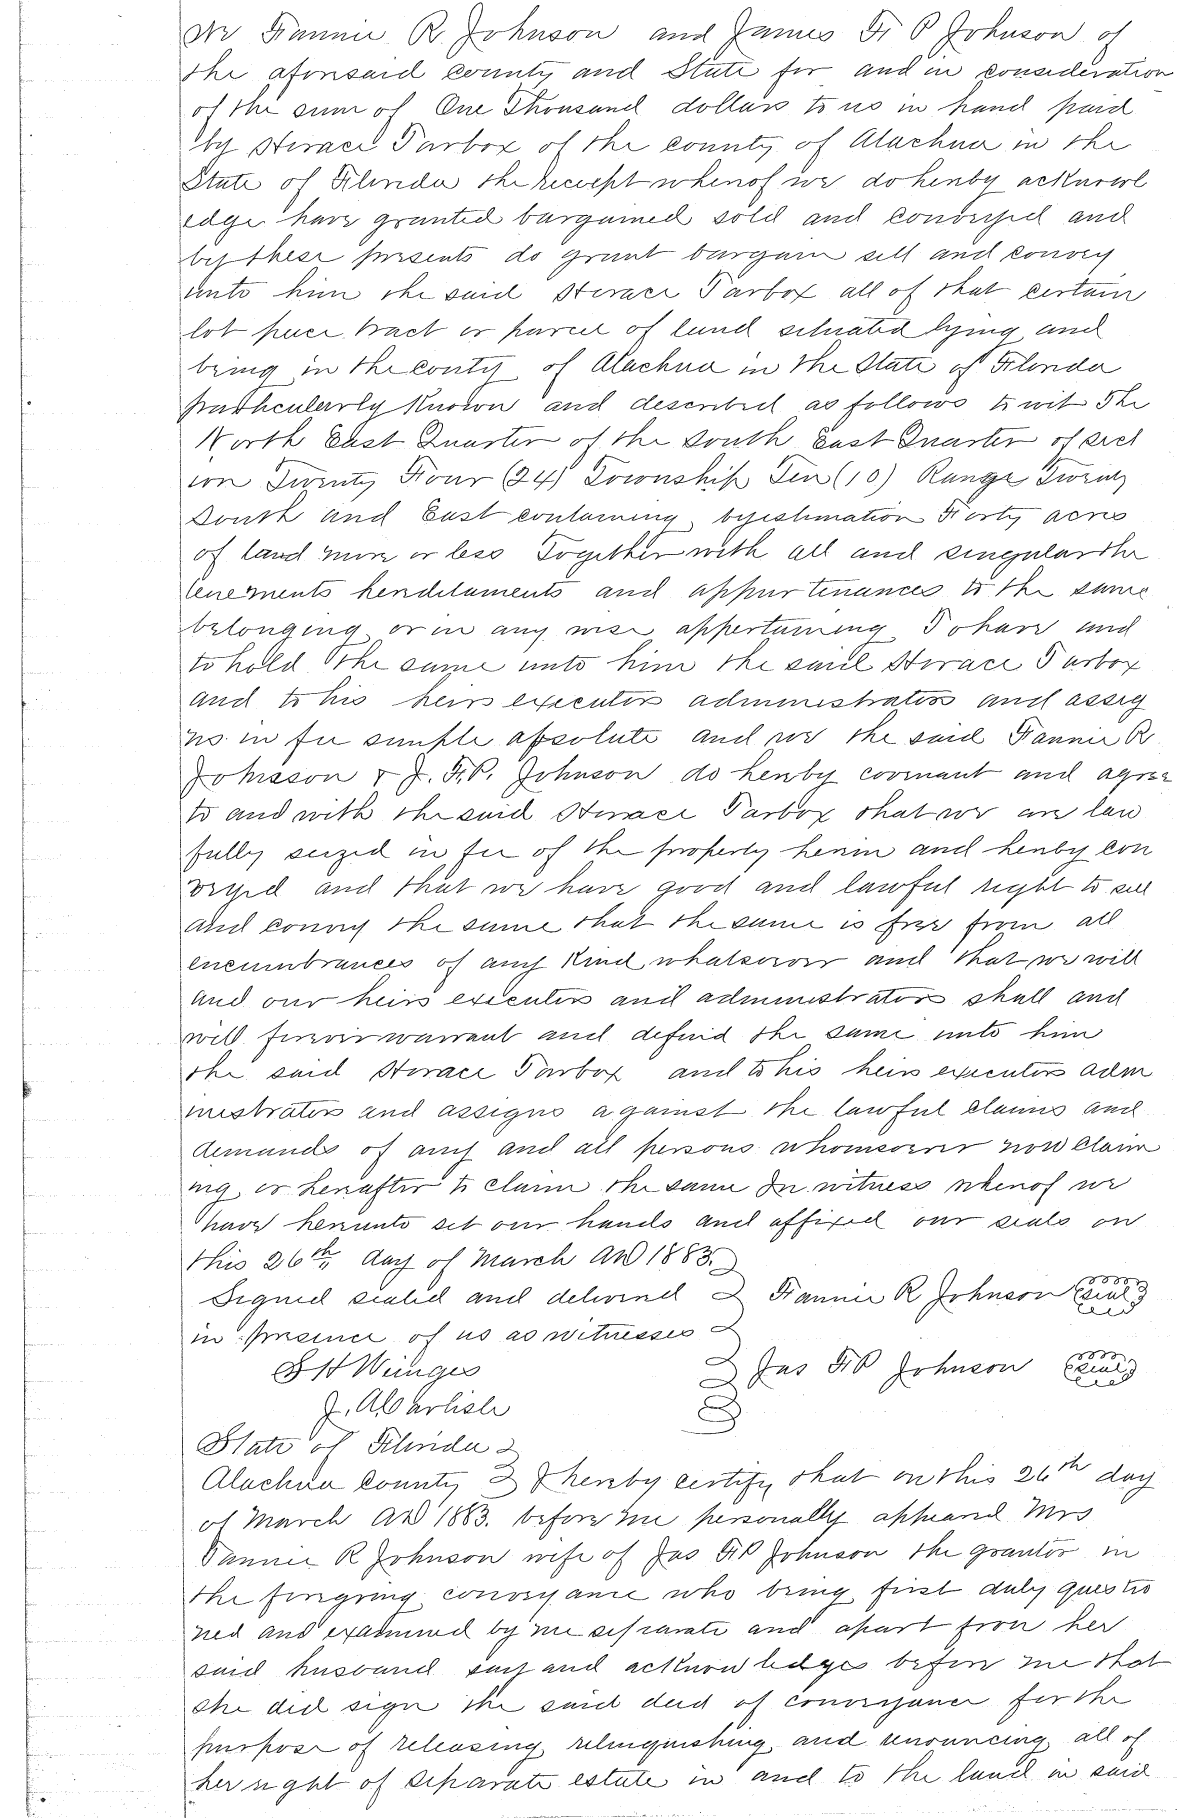 We Fannie R. Johnson and James F. P Johnson of
the aforesaid County and State for and in consideration
of the sum of One Thousand dollars to us in hand paid
by Horace Tarbox of the county of Alachua in the
State of Florida the receipt whereof we do hereby acknowl
edge have granted bargained sold and conveyed and
by these presents do grant bargain sell and convey
unto him the said Horace Tarbox all of that certain
lot piece tract or parcel of land situated lying and
being in the conty of Alachua in the State of Florida
particularly Known and described as follows to wit The
North East Quarter of the South East Quarter of sect
ion Twenty Four (24) Township Ten (10) Range Twenty
South and East containing by estimation Forty acres
of land more or less Together with all and singular the
tenements hereditaments and appurtenances to the same
belonging or in any wise appertaining To have and
to hold the same unto him the said Horace Tarbox
and to his heirs executors administrators and assig
ns in fee simple absolute and we the said Fannie R
Johnson & J. F. P. Johnson do hereby covenant and agree
to and with the said Horace Tarbox that we are law
fully seized in fee of the property herein and hereby con
veyed and that we have good and lawful right to sell
and convey the same that the same is free from all
encumbrances of any Kind whatsoever and that we will
and our heirs executors and administrators shall and
will forever warrant and defend the same unto him
the said Horace Tarbox and to his heirs executors adm
inistrators and assigns against the lawful claims and
demands of any and all persons whomsoever now claim
ing or hereafter to claim the same In witness whereof we
have hereunto set our hands and affixed our seals on
this 26th day of March AD 1883.
Signed sealed and delivered Fannie R Johnson (seal)
in presence of us as witnesses
S H Wienges Jas F P Johnson (seal)
J. A Carlisle
State of Florida
Alachua County I hereby certify that on this 26th day
of March AD 1883. before me personally appeared Mrs
Fannie R Johnson wife of Jas F P Johnson the grantor in
the foregoing conveyance who being first duly questio
ned and examined by me separate and apart from her
said husband say and acknowledges before me that
she did sign the said deed of conveyance for the
purpose of releasing relinquishing and renouncing all of
her right of separate estate in and to the land in said